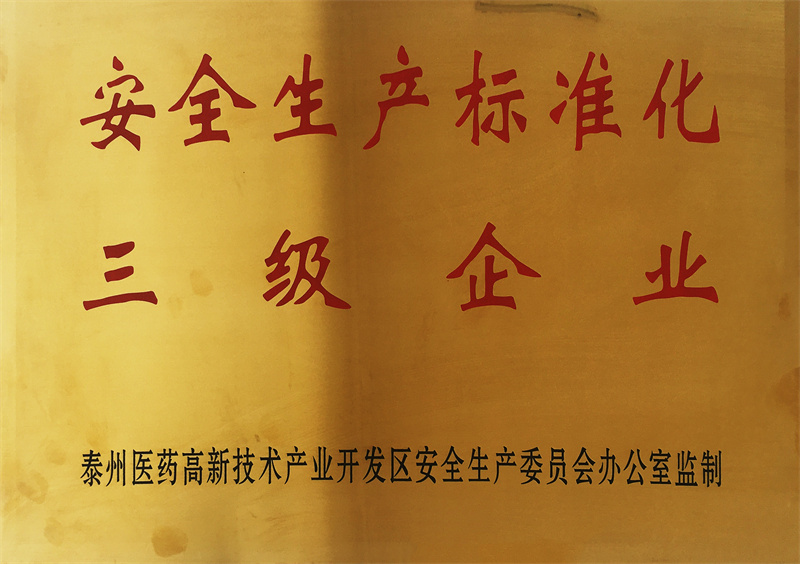 安全生产标准化
三级企业
泰州医药高新技术产业开发区安全生产委员会办公室监制